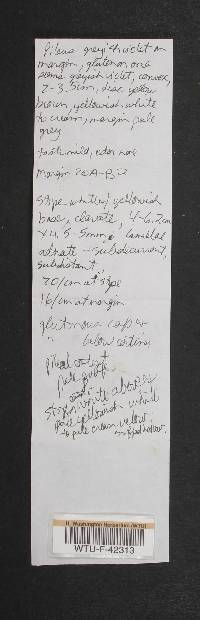 Pileus greyish violet on
margin, glutenon, one
some greyish violet, convex,
2-3.5cm, disc yellow
brown, yellowish white
to cream, margin pale
grey
taste mild, odor none
margin 20A-B2
stipe white, yellowish
base, clavate, 4-6.2cm
x 4.5-5mm, lamellae
adnate - subdecurrent,
subdistant,
20/cm at stipe
16/cm at margin
glutinous cap &
" below cortina
pale
stipe white above
pale yellowish white
to pale cream yellow.
U. Washington Herbarium (WTU)
WTU-F-42313